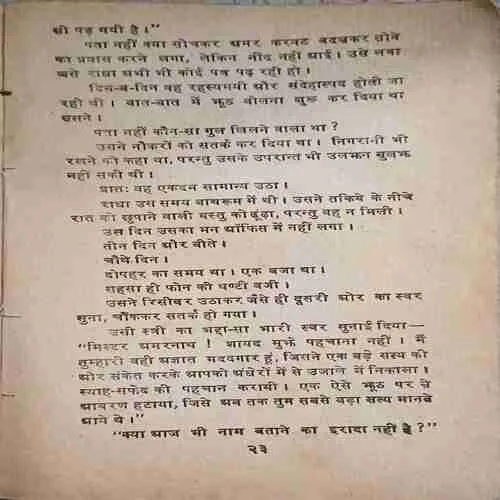 भी पड़ गयी है।”
पता नहीं क्या सोचकर अमर करवट बदलकर सोने
का प्रयास करने लगा, लेकिन नींद नहीं आई। उसे लगा
जैसे राधा अभी भी कोई पत्र पढ़ रही हो।
दिन-ब-दिन वह रहस्यमयी और संदेहास्पद होती जा
रही थी। बात-बात में झूठ बोलना शुरू कर दिया था
उसने।
पता नहीं कौन-सा गुल खिलने वाला था ?
उसने नौकरों को सतर्क कर दिया था। निगरानी भी
रखने को कहा था, परन्तु उसके उपरान्त भी उलझन सुलझ
नहीं सकी थी।
प्रातः वह एकदम सामान्य उठा।
राधा उस समय बाथरूम में थी। उसने तकिये के नीचे
रात को छुपाने वाली वस्तु को ढूंढ़ा, परन्तु वह न मिली।
उस दिन उसका मन ऑफिस में नहीं लगा।
तीन दिन और बीते।
चौथे दिन।
दोपहर का समय था। एक बजा था।
सहसा ही फोन की घण्टी बजी।
उसने रिसीवर उठाकर जैसे ही दूसरी ओर का स्वर
सुना, चौंककर सतर्क हो गया।
उसी स्त्री का भद्दा-सा भारी स्वर सुनाई दिया—
“मिस्टर अमरनाथ ! शायद मुझे पहचाना नहीं। मैं
तुम्हारी वही अज्ञात मददगार हूं, जिसने एक बड़े सत्य की
ओर संकेत करके आपको अंधेरों में से उजाने में निकाला।
स्याह-सफेद की पहचान करायी। एक ऐसे झूठ पर से
आवरण हटाया, जिसे अब तक तुम सबसे बड़ा सत्य मानते
आये थे।”
“क्या आज भी नाम बताने का इरादा नहीं है ?”
२३